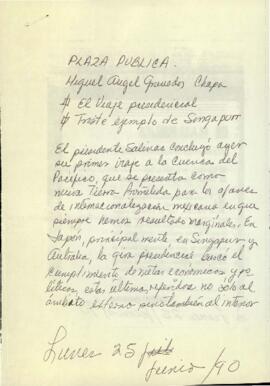 PLAZA PUBLICA.
Miguel Angel Granados Chapa
# El Viaje presidencial
# Triste ejemplo de Singapur
El presidente Salinas concluyó ayer
su primer viaje a la Cuenca del
Pacífico, que se presenta como
nueva Tierra Prometida para los afanes
de internacionalización mexicana en que
siempre hemos resultado marginales. En
Japón, principalmente, en Singapur y
Autralia, la gira presidencial buscó el
cumplimiento de metas económicas y po
líticas, estas últimas referidas no sólo al
ámbito externo sino también al interior
Lunes 25
junio/90